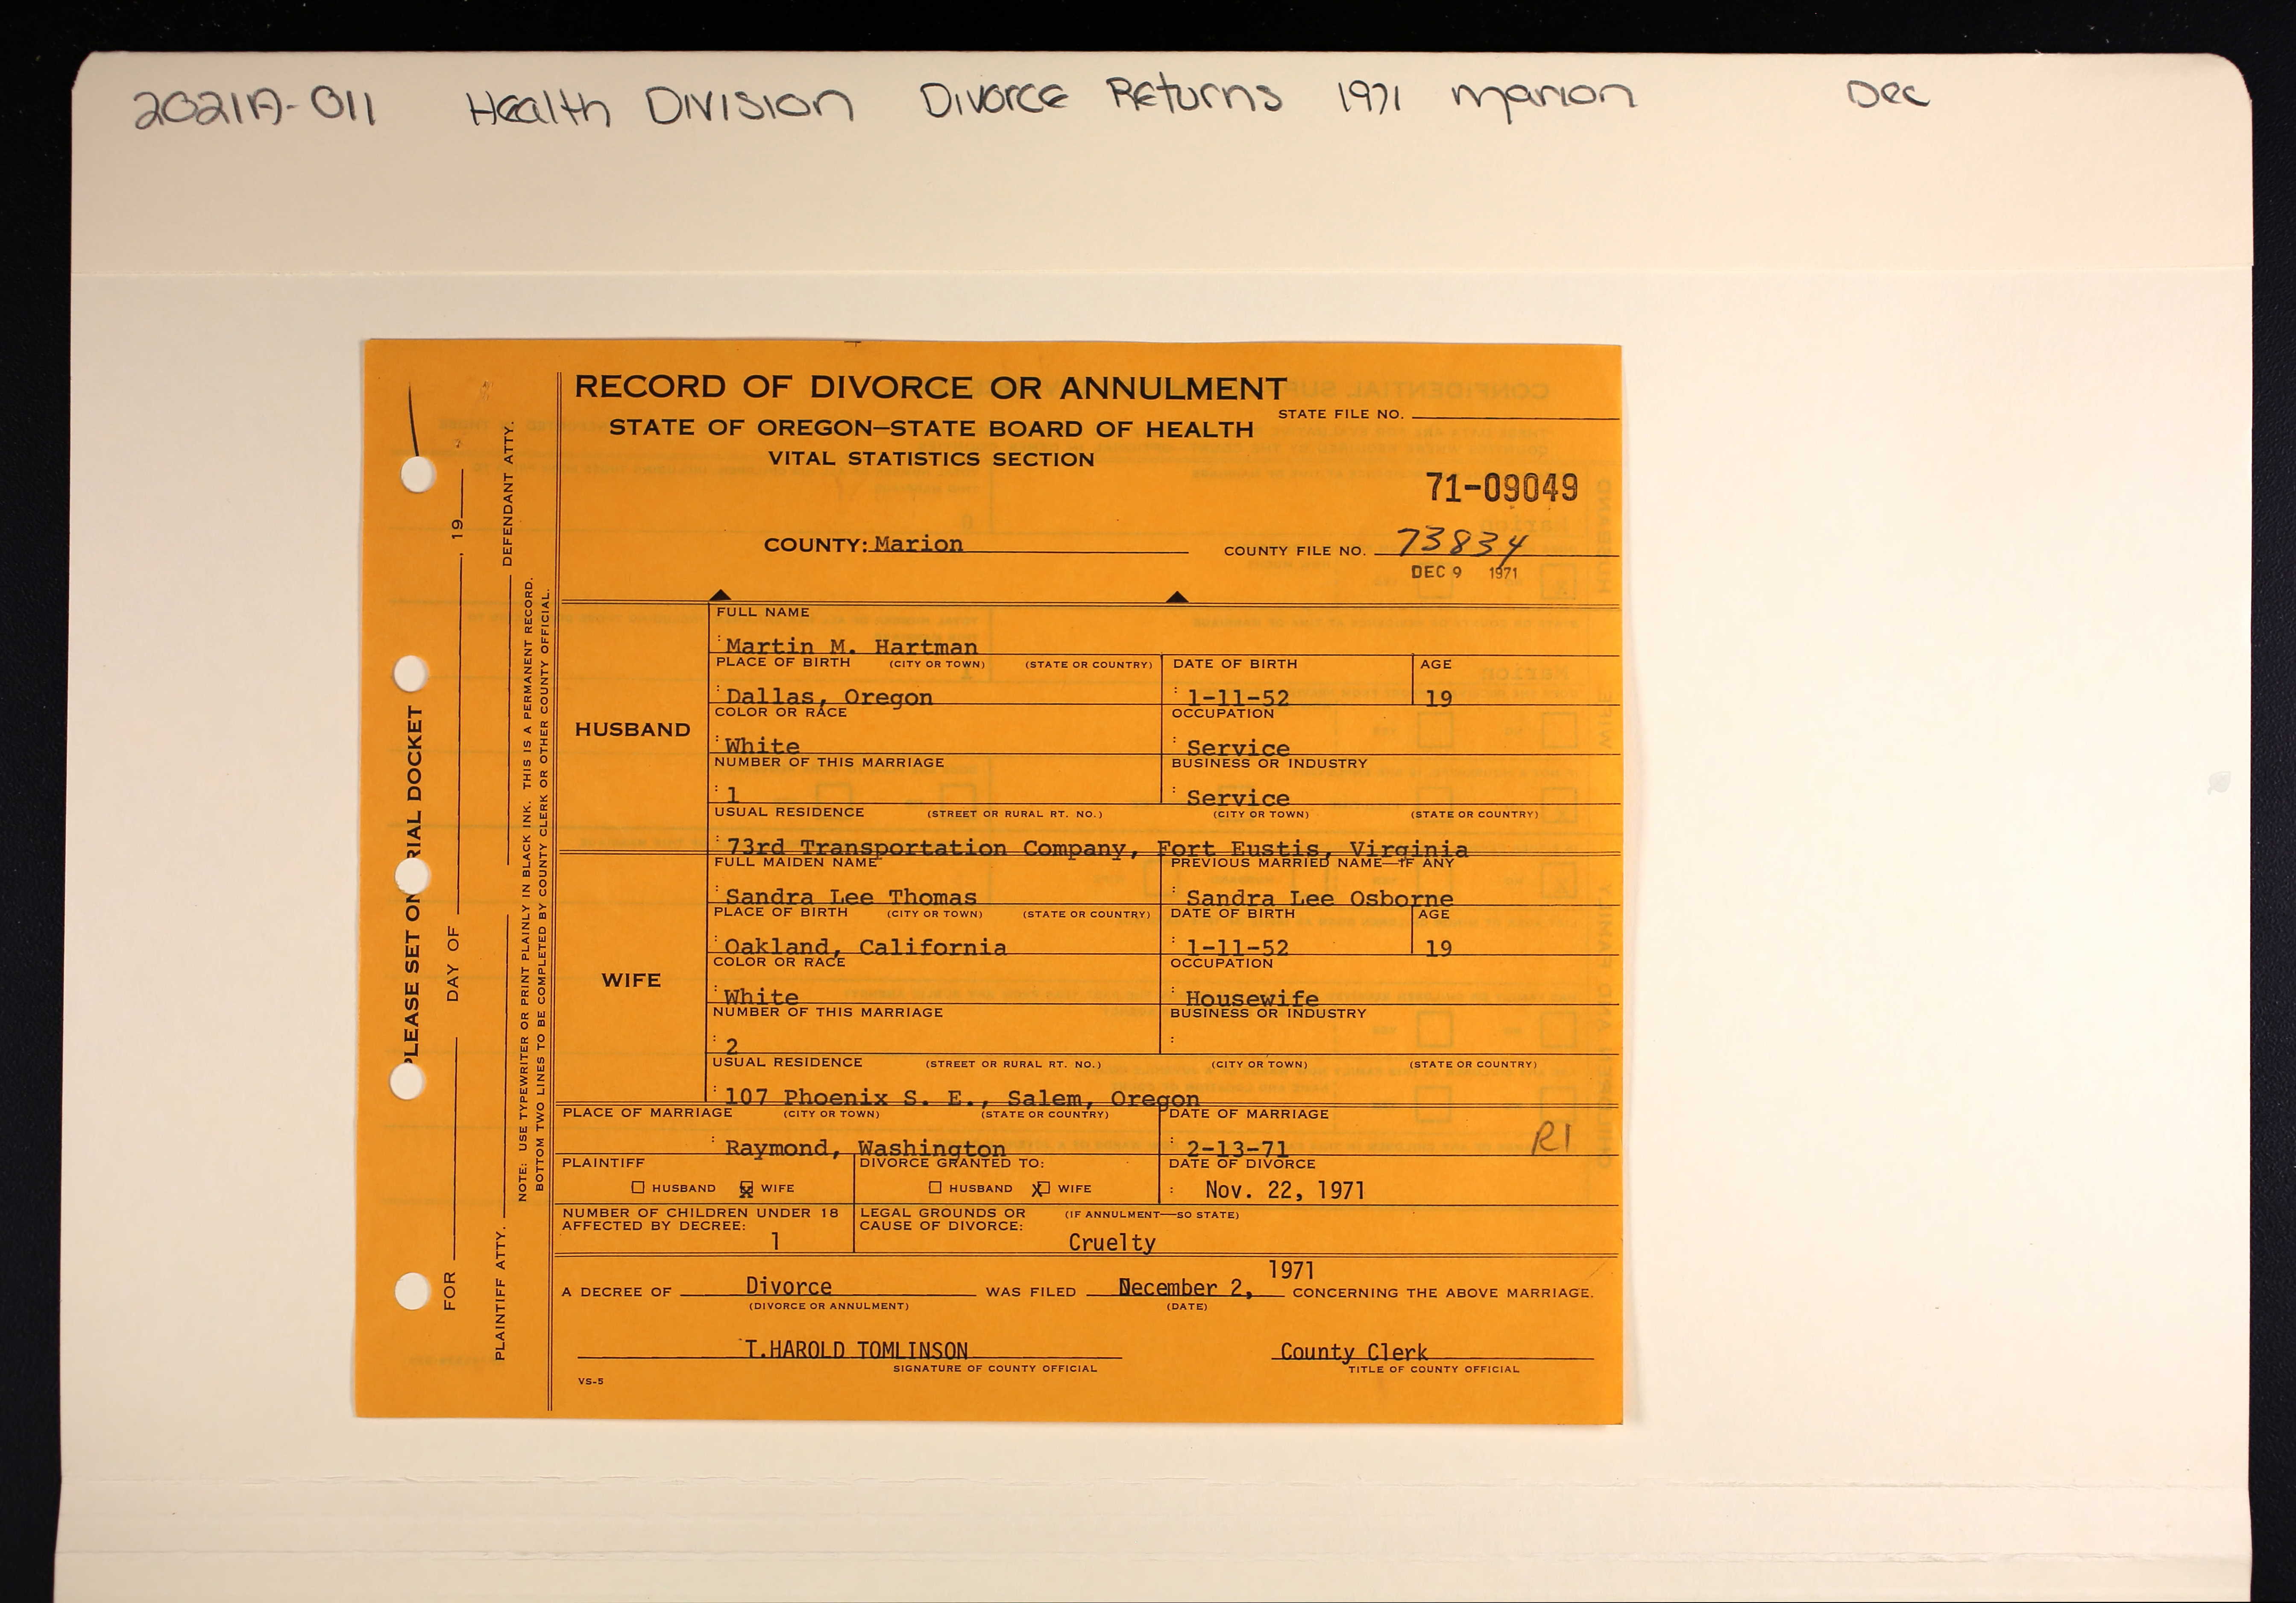 2021A-011 Health Division Divorce Returns 1971 Marion Dec
RECORD OF DIVORCE OR ANNULMENT
STATE FILE NO.
STATE OF OREGON—STATE BOARD OF HEALTH
VITAL STATISTICS SECTION
71-09049
COUNTY: Marion COUNTY FILE NO. 73834
DEC 9 1971
HUSBAND
FULL NAME
Martin M. Hartman
PLACE OF BIRTH (CITY OR TOWN) (STATE OR COUNTRY) DATE OF BIRTH AGE
Dallas, Oregon 1-11-52 19
COLOR OR RACE OCCUPATION
White Service
NUMBER OF THIS MARRIAGE BUSINESS OR INDUSTRY
1 Service
USUAL RESIDENCE (STREET OR RURAL RT. NO.) (CITY OR TOWN) (STATE OR COUNTRY)
73rd Transportation Company, Fort Eustis, Virginia
WIFE
FULL MAIDEN NAME PREVIOUS MARRIED NAME—IF ANY
Sandra Lee Thomas Sandra Lee Osborne
PLACE OF BIRTH (CITY OR TOWN) (STATE OR COUNTRY) DATE OF BIRTH AGE
Oakland, California 1-11-52 19
COLOR OR RACE OCCUPATION
White Housewife
NUMBER OF THIS MARRIAGE BUSINESS OR INDUSTRY
2
USUAL RESIDENCE (STREET OR RURAL RT. NO.) (CITY OR TOWN) (STATE OR COUNTRY)
107 Phoenix S. E., Salem, Oregon
PLACE OF MARRIAGE (CITY OR TOWN) (STATE OR COUNTRY) DATE OF MARRIAGE
Raymond, Washington 2-13-71 RI
PLAINTIFF DIVORCE GRANTED TO: DATE OF DIVORCE
HUSBAND X WIFE HUSBAND X WIFE Nov. 22, 1971
NUMBER OF CHILDREN UNDER 18 LEGAL GROUNDS OR (IF ANNULMENT—SO STATE)
AFFECTED BY DECREE: CAUSE OF DIVORCE:
1 Cruelty
1971
A DECREE OF Divorce WAS FILED December 2, CONCERNING THE ABOVE MARRIAGE.
(DIVORCE OR ANNULMENT) (DATE)
T.HAROLD TOMLINSON County Clerk
SIGNATURE OF COUNTY OFFICIAL TITLE OF COUNTY OFFICIAL
VS-5
PLEASE SET ON RIAL DOCKET
FOR DAY OF , 19
PLAINTIFF ATTY. DEFENDANT ATTY.
NOTE: USE TYPEWRITER OR PRINT PLAINLY IN BLACK INK. THIS IS A PERMANENT RECORD.
BOTTOM TWO LINES TO BE COMPLETED BY COUNTY CLERK OR OTHER COUNTY OFFICIAL.